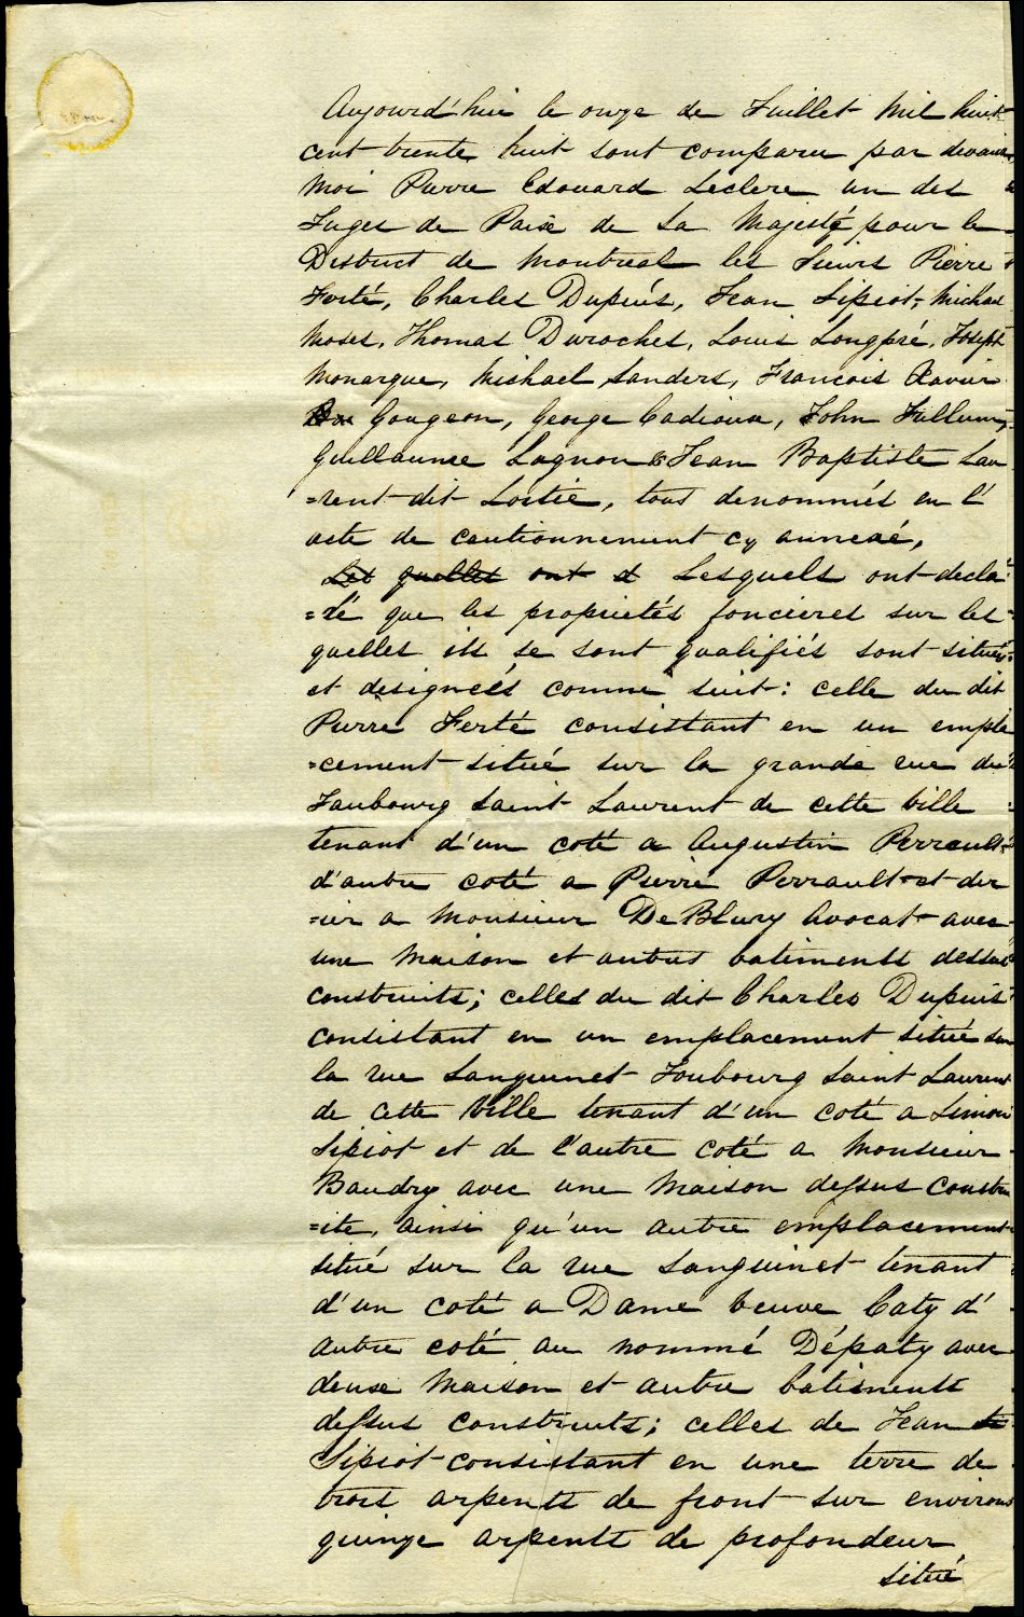 Aujourd'hui le onze de Juillet mil huit
cent trente huit sont comparu par devant
moi Pierre Edouard Leclere un des
Juges de Paix de Sa Majesté pour le
District de Montreal les Sieurs Pierre
Ferté, Charles Dupuis, Jean Sipiot, Michael
Moses, Thomas Durocher, Louis Longpré, Joseph
Monarque, Michael Sanders, Francois Xavier
Gougeon, George Cadioux, John Fullum,
Guillaume Lognon & Jean Baptiste Lau
=rent dit Lortie, tous denommés en l'
acte de cautionnement cy annexé,
Les quelles ont d Lesquels ont decla
=ré que les proprietés foncieres sur les
quelles ils se sont qualifiés sont situées
et designeés comme suit: celle du dit
Pierre Ferté consistant en un empla
=cement situé sur la grande rue du
Faubourg Saint Laurent de cette ville
tenant d'un coté a Augustin Perrault
d'autre coté a Pierre Perrault et der
=ier a Monsieur De Bleury Avocat avec
une maison et autres batiments dessus
construits; celles du dit Charles Dupuis
consistant en un emplacement situé sur
la rue Sanguinet Foubourg Saint Laurent
de cette ville tenant d'un coté a Simon
Sipiot et de l'autre coté a Monsieur
Baudry avec une maison dessus constru
=ite, ainsi qu'un autre emplacement
situé sur la rue Sanguinet tenant
d'un coté a Dame veuve Caty d'
autre coté au nommé Dépaty avec
deuxe maison et autre batiments
dessus construits; celles de Jean
Sipiot consistant en une terre de
trois arpents de front sur environ
quinze arpents de profondeur
situé